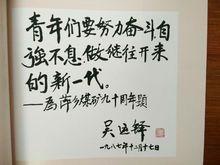 青年们要努力奋斗，自
强不息，做继往开来
的新一代。
——为萍乡煤矿九十周年题
吴运铎
一九八七年十二月十七日